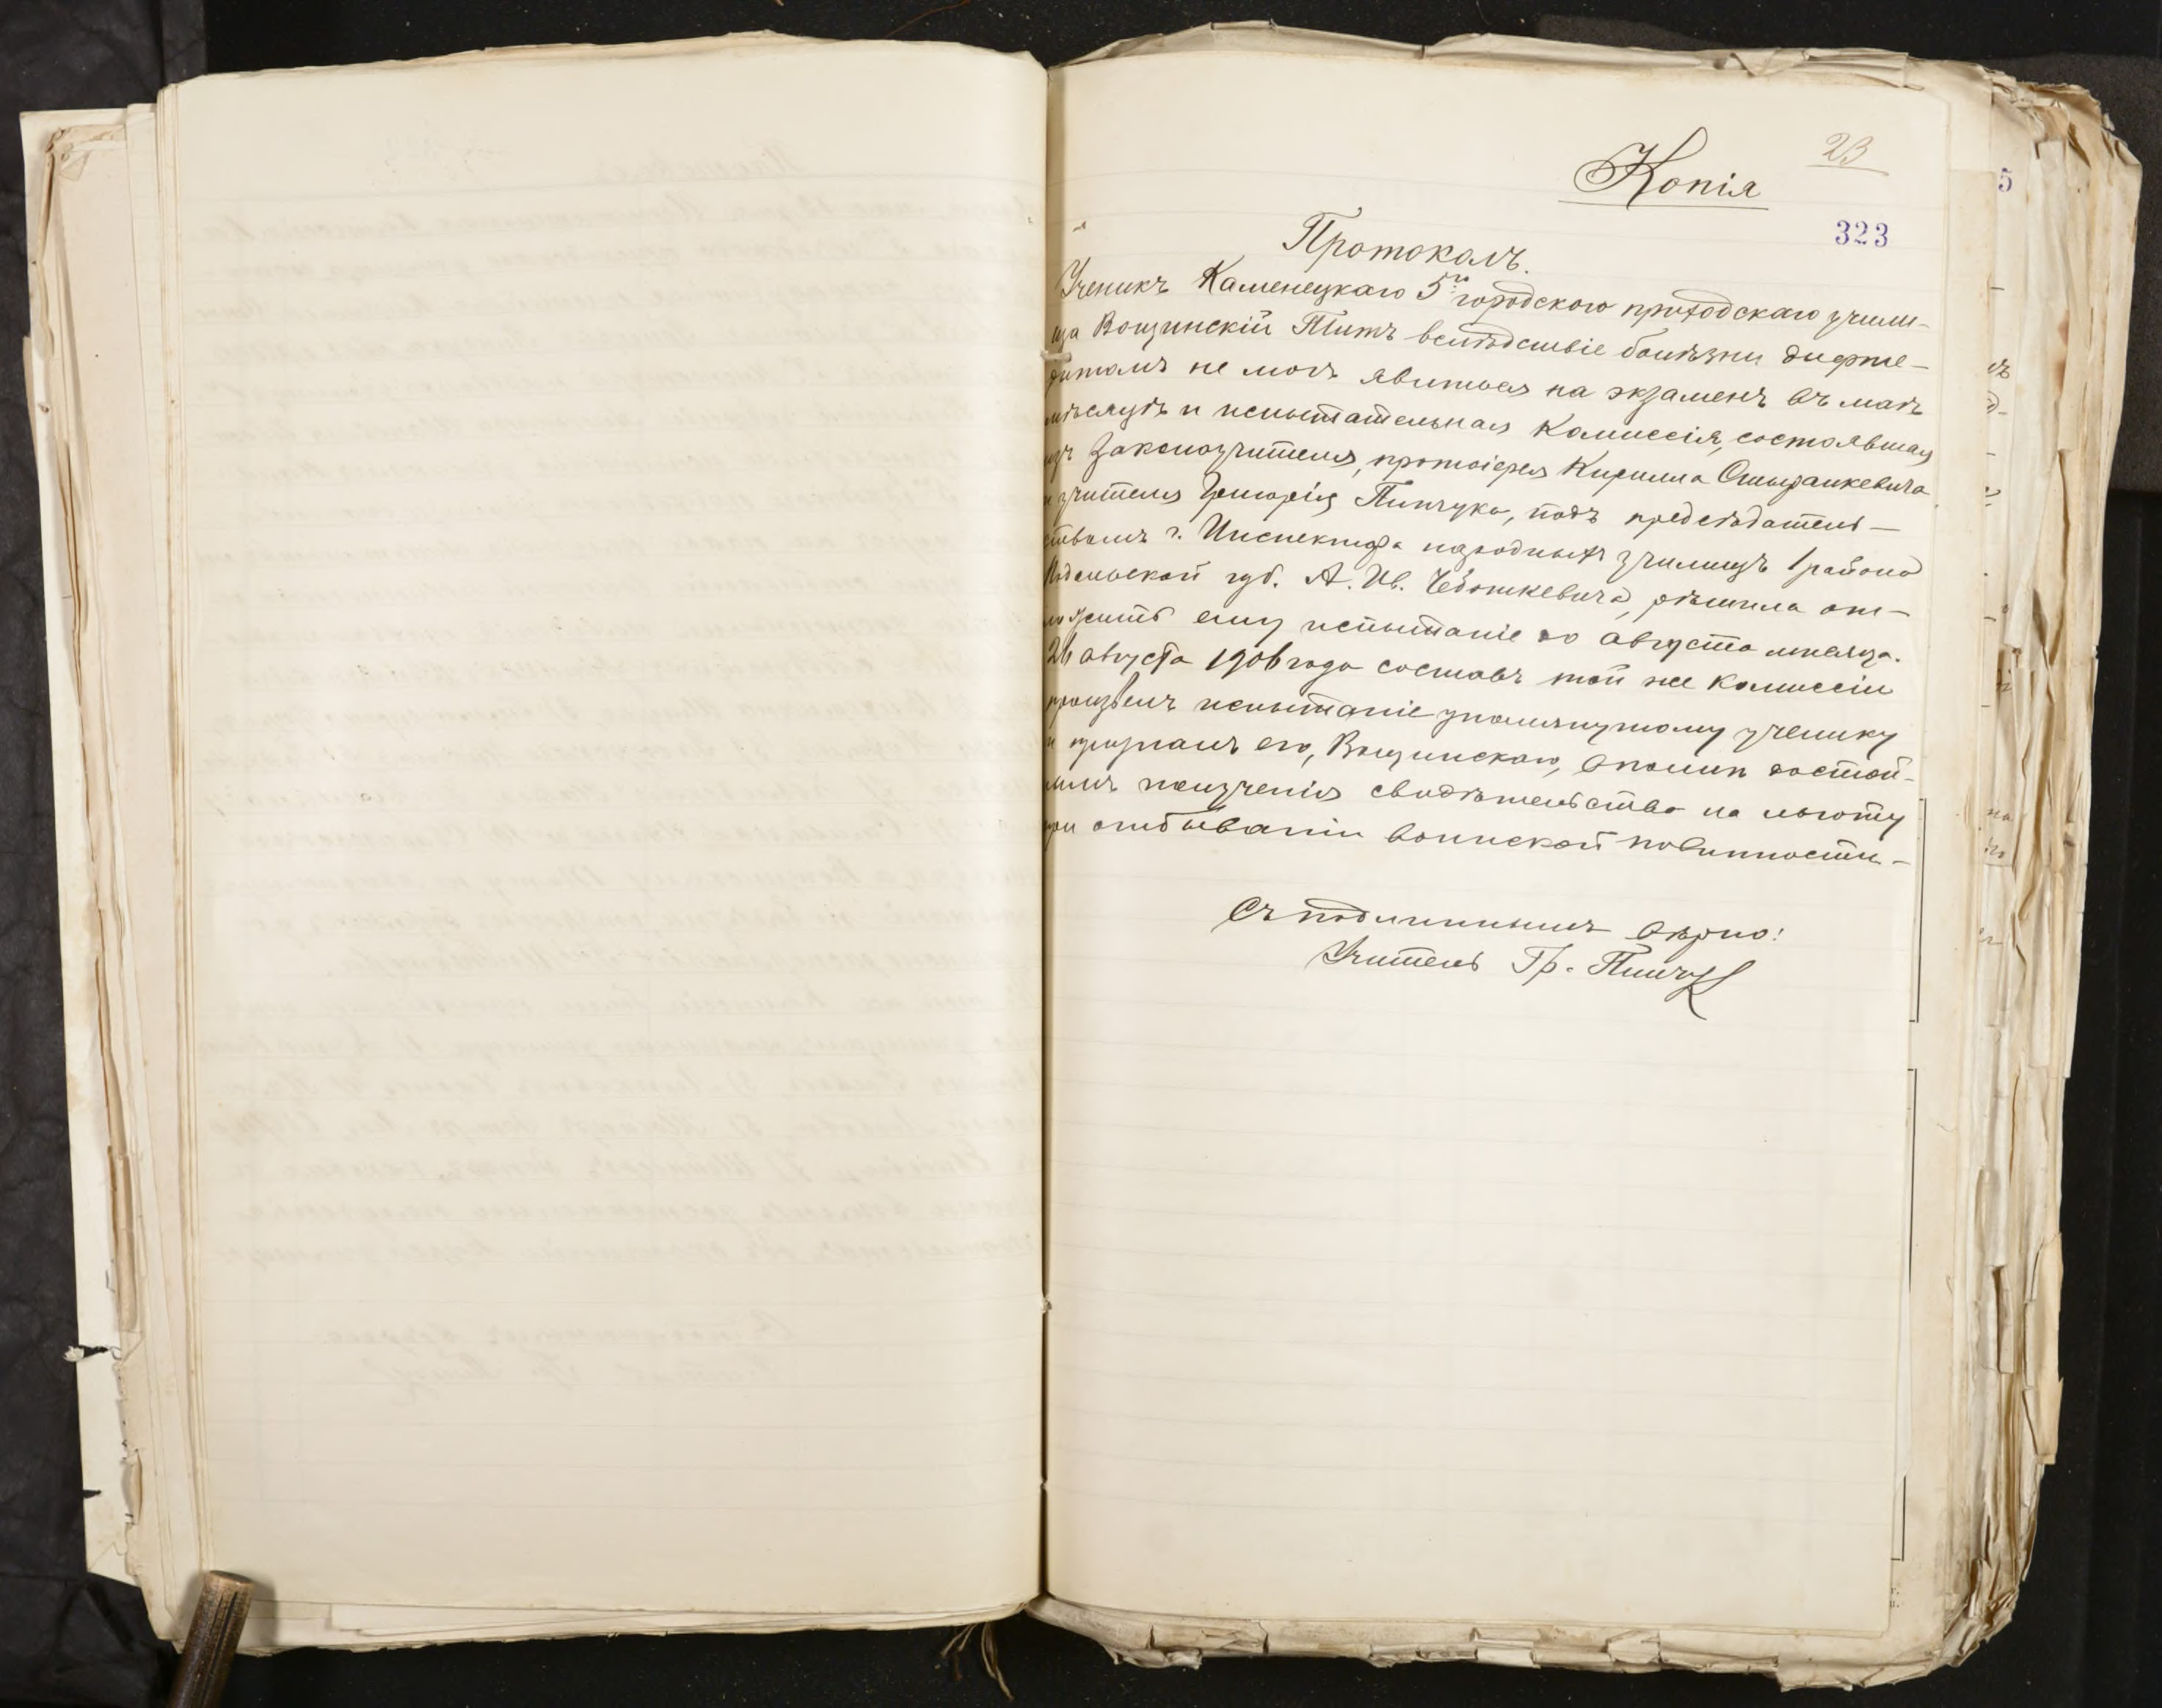 23
Копія
323
Протоколъ.
Ученикъ Каменецкаго 5го городского приходскаго учили-
ща Вощинскій Титъ вслѣдствіе болѣзни дифте-
ритомъ не могъ явиться на экзаменъ въ маѣ
мѣсяцѣ и испытательная Комиссія, состоявшая
изъ Законоучителя, протоіерея Кирилла Стыранкевича
и учителя Григорія Пинчука, подъ предсѣдатель-
ствомъ г. Инспектора народныхъ училищъ 1 района
Подольской губ. А. Ив. Чеботкевича, рѣшила от-
ложить ему испытаніе до августа месяца.
августа 1906 года составъ той же комиссіи
произвелъ испытаніе упомянутому ученику
и призналъ его, Вощинскаго, вполнѣ достой-
нымъ полученія свидѣтельства на льготу
при отбываніи воинской повинности. –
Съ подлиннымъ вѣрно:
Учитель Гр. Пинчук
5